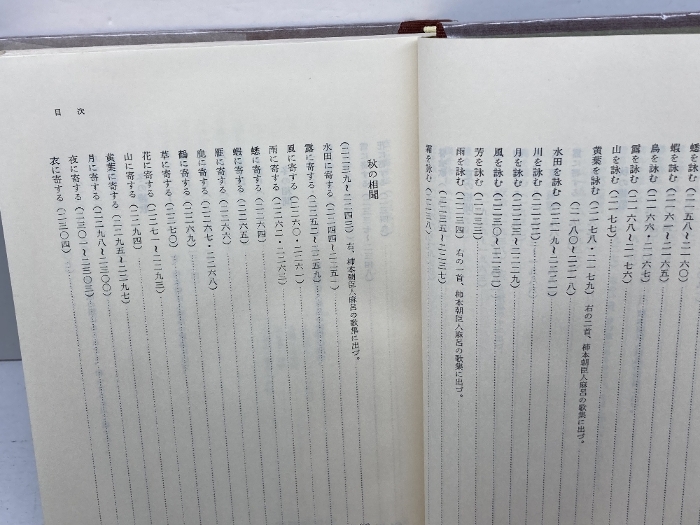 蟋を詠む(二一五八~二一六〇)
蝦を詠む(二一六一~二一六五)
鳥を詠む(二一六六・二一六七)
露を詠む(二一六八~二一七六)
山を詠む(二一七七)
黄葉を詠む(二一七八・二一七九) 右の二首、柿本朝臣人麻呂の歌集に出づ。
(二一八〇~二二一八)
水田を詠む(二二一九~二二二一)
川を詠む(二二二二)
月を詠む(二二二三~二二二九)
風を詠む(二二三〇~二二三二)
芳を詠む(二二三三)
雨を詠む(二二三四) 右の一首、柿本朝臣人麻呂の歌集に出づ。
(二二三五~二二三七)
霜を詠む(二二三八)
秋の相聞
(二二三九~二二四三)右、柿本朝臣人麻呂の歌集に出づ。
水田に寄する(二二四四~二二五一)
露に寄する(二二五二~二二五九)
風に寄する(二二六〇・二二六一)
雨に寄する(二二六二・二二六三)
蟋に寄する(二二六四)
蝦に寄する(二二六五)
雁に寄する(二二六六)
鹿に寄する(二二六七・二二六八)
鶴に寄する(二二六九)
草に寄する(二二七〇)
花に寄する(二二七一~二二九三)
山に寄する(二二九四)
黄葉に寄する(二二九五~二二九七)
月に寄する(二二九八~二三〇〇)
夜に寄する(二三〇一~二三〇三)
衣に寄する(二三〇四)
目次